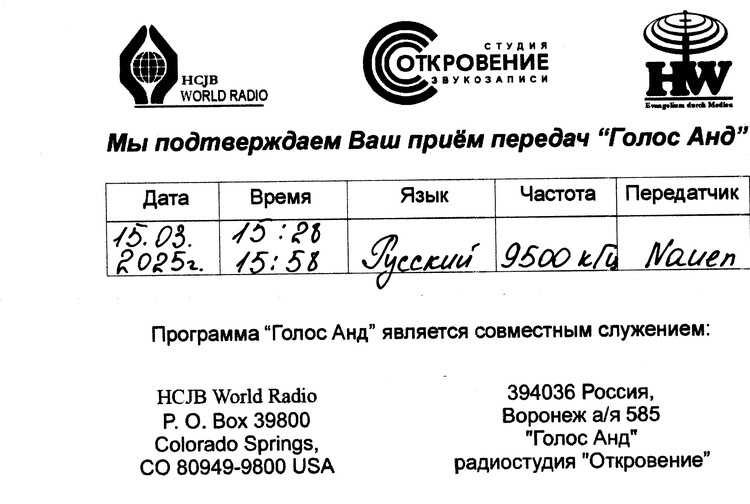 HCJB
WORLD RADIO
СТУДИЯ
ОТКРОВЕНИЕ
ЗВУКОЗАПИСИ
HW
Evangelium durch Medien
Мы подтверждаем Ваш приём передач “Голос Анд”
Дата Время Язык Частота Передатчик
15.03. 15:28
2025г. 15:58 Русский 9500 кГц Nauen
Программа “Голос Анд” является совместным служением:
HCJB World Radio
P. O. Box 39800
Colorado Springs,
CO 80949-9800 USA
394036 Россия,
Воронеж а/я 585
"Голос Анд"
радиостудия "Откровение"